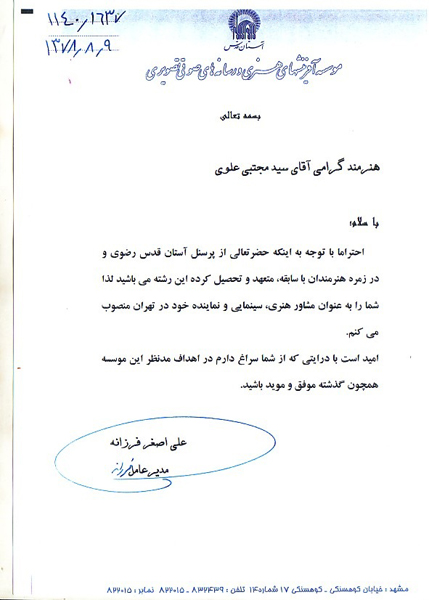 ۱۱۴۰/۱۶۳۷
۱۳۷۸/۸/۹
آستان قدس
موسسه آفرینشهای هنری و رسانه های صوتی تصویری
بسمه تعالی
هنرمند گرامی آقای سید مجتبی علوی
با سلام:
احتراما با توجه به اینکه حضرتعالی از پرسنل آستان قدس رضوی و
در زمره هنرمندان با سابقه، متعهد و تحصیل کرده این رشته می باشید لذا
شما را به عنوان مشاور هنری، سینمایی و نماینده خود در تهران منصوب
می کنم.
امید است با درایتی که از شما سراغ دارم در اهداف مدنظر این موسسه
همچون گذشته موفق و موید باشید.
علی اصغر فرزانه
مدیرعامل
مشهد : خیابان کوهسنگی - کوهسنگی ۱۷ شماره ۱۴ تلفن : ۸۳۲۴۳۹ - ۸۲۲۰۱۵ نمابر : ۸۲۲۰۱۵